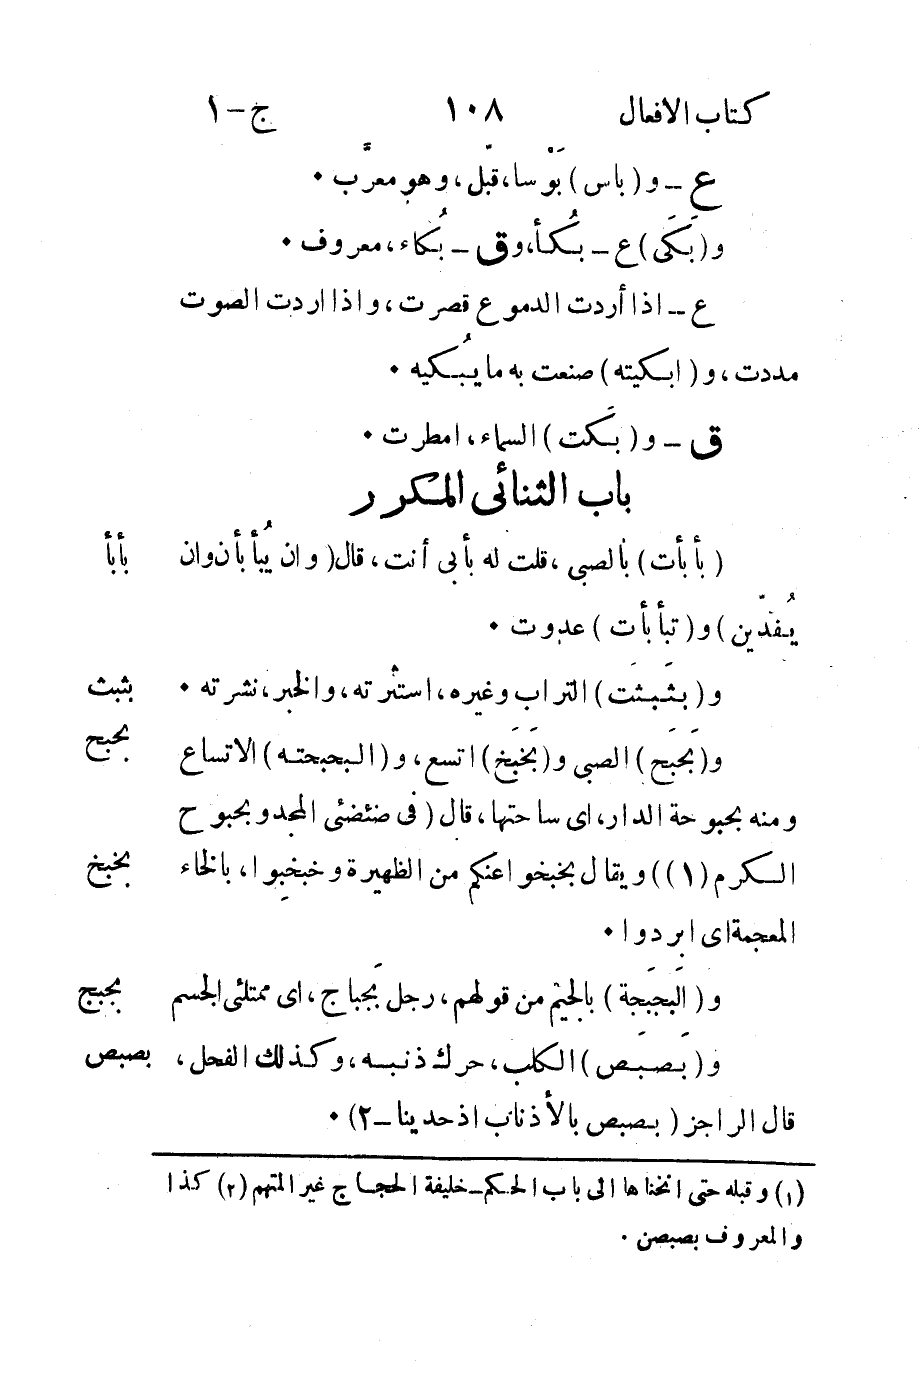 كتاب الافعال ١٠٨ ج-١
ع ـ و (باس) بَوْسا، قبّل، وهو معرَّب .
و (بَكَى) ع ـ بُكأ، وق ـ بُكاء، معروف .
ع ـ اذا أردت الدموع قصرت، واذا اردت الصوت
مددت، و (ابكيته) صنعت به ما يُبكيه .
ق ـ و (بَكت) السماء، امطرت .
باب الثنائى المكرر
(بأبأت) بالصبى، قلت له بأبى أنت، قال (وان يُبأبأن وان بأبأ
يُفدّين) و (تبأبأت) عدوت .
و (بَثبَثت) التراب وغيره، استثرته، والخبر، نشرته . بثبث
و (بَحبَح) الصبى و (بَخبَخ) اتسع، و (البحبحته) الاتساع بحبح
ومنه بحبوحة الدار، اى ساحتها، قال (فى ضئضئى المجد وبحبوح
الكرم (١)) ويقال بخبخوا عنكم من الظهيرة وخبخبوا، بالخاء بخبخ
المعجمة اى ابردوا .
و (البَجبَجة) بالجيم من قولهم، رجل بَجباج، اى ممتلئى الجسم بجبج
و (بَصبَص) الكلب، حرك ذنبه، وكذلك الفحل، بصبص
قال الراجز (بصبص بالأذناب اذ حدينا ـ ٢) .
(١) وقبله حتى انخناها الى باب الحكم ـ خليفة الحجاج غير المتهم (٢) كذا
والمعروف بصبصن .